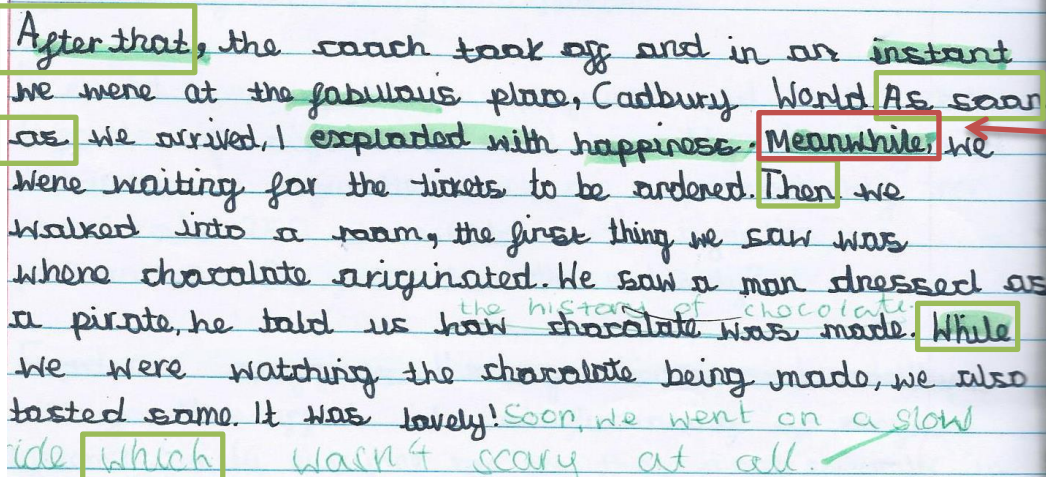 After that, the coach took off and in an instant
we were at the fabulous place, Cadbury World. As soon
as we arrived, I exploded with happiness. Meanwhile, we
were waiting for the tickets to be ordered. Then we
walked into a room, the first thing we saw was
where chocolate originated. We saw a man dressed as
the history of chocolate.
a pirate, he told us how chocolate was made. While
we were watching the chocolate being made, we also
tasted some. It was lovely! Soon, we went on a slow
ide which wasn't scary at all.